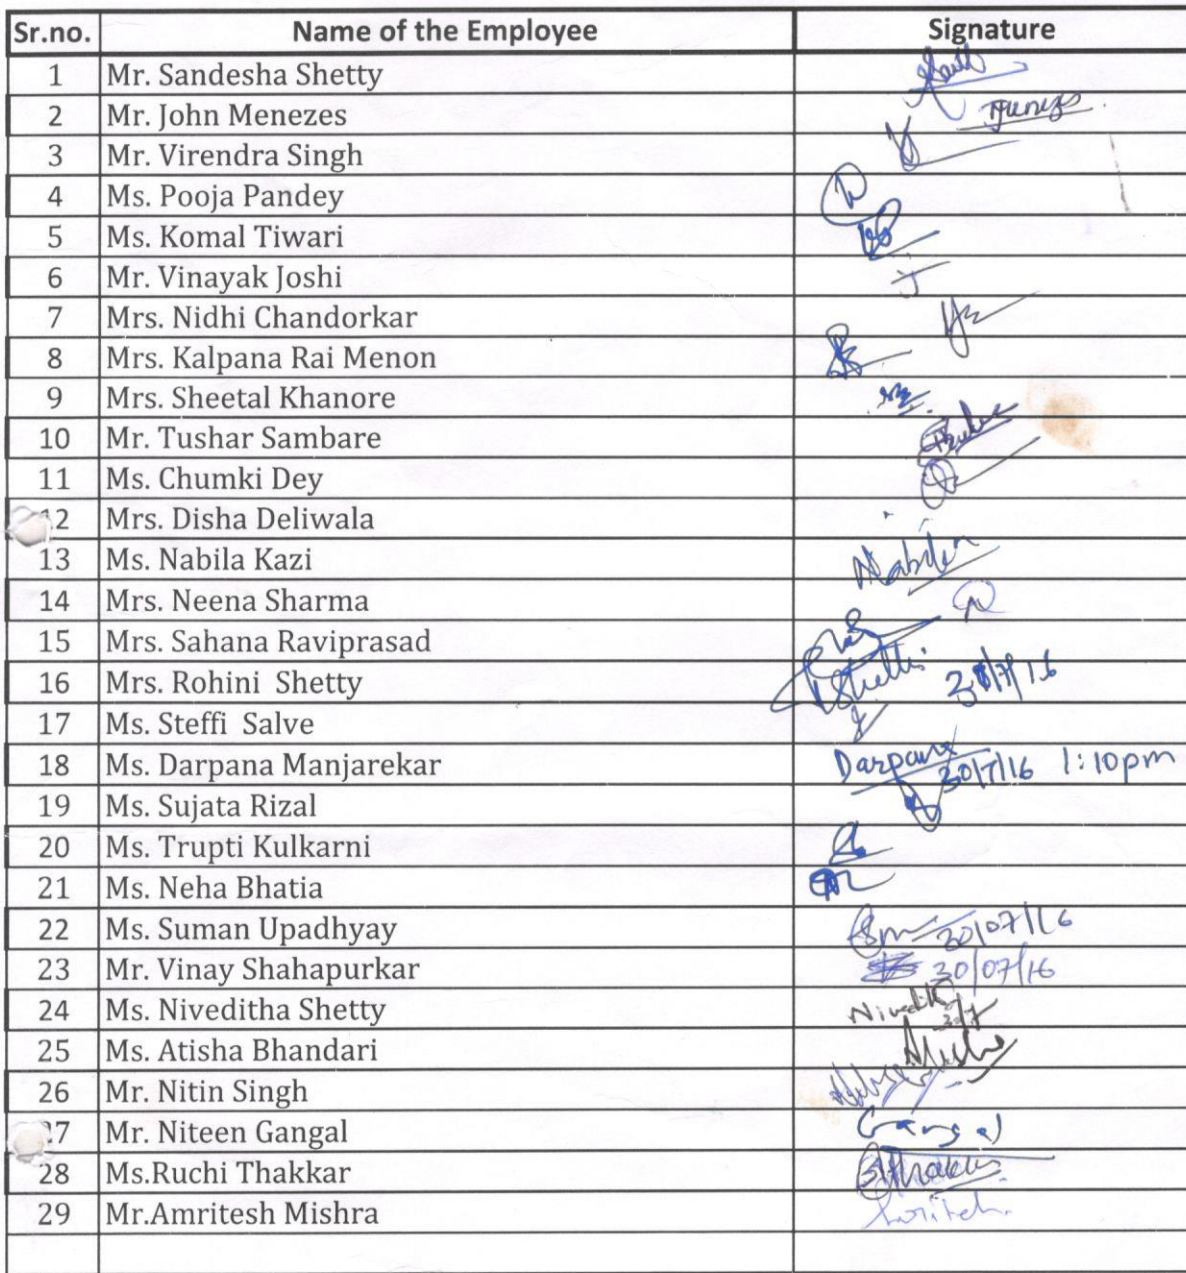 Sr.no. Name of the Employee Signature
1 Mr. Sandesha Shetty
2 Mr. John Menezes
3 Mr. Virendra Singh
4 Ms. Pooja Pandey
5 Ms. Komal Tiwari
6 Mr. Vinayak Joshi
7 Mrs. Nidhi Chandorkar
8 Mrs. Kalpana Rai Menon
9 Mrs. Sheetal Khanore
10 Mr. Tushar Sambare
11 Ms. Chumki Dey
12 Mrs. Disha Deliwala
13 Ms. Nabila Kazi
14 Mrs. Neena Sharma
15 Mrs. Sahana Raviprasad
16 Mrs. Rohini Shetty
17 Ms. Steffi Salve
18 Ms. Darpana Manjarekar Darpana 30/7/16 1:10pm
19 Ms. Sujata Rizal
20 Ms. Trupti Kulkarni
21 Ms. Neha Bhatia
22 Ms. Suman Upadhyay 30/07/16
23 Mr. Vinay Shahapurkar 30/07/16
24 Ms. Niveditha Shetty
25 Ms. Atisha Bhandari
26 Mr. Nitin Singh
27 Mr. Niteen Gangal Gangal
28 Ms.Ruchi Thakkar
29 Mr.Amritesh Mishra